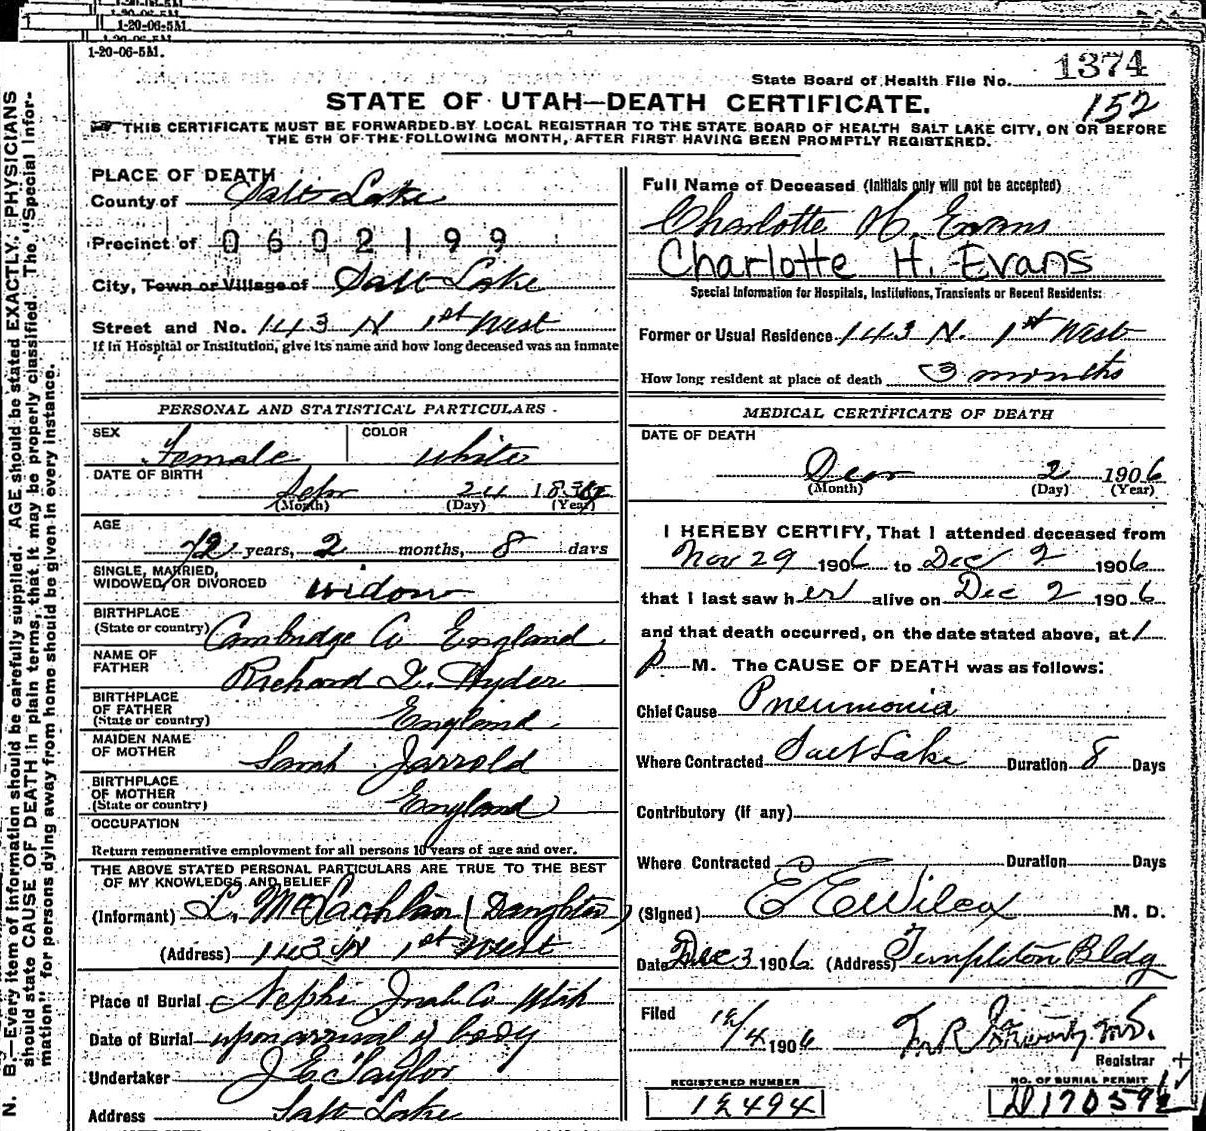 1-20-06-5M.
1-20-06-5M.
State Board of Health File No. 1374
STATE OF UTAH—DEATH CERTIFICATE.
152
THIS CERTIFICATE MUST BE FORWARDED BY LOCAL REGISTRAR TO THE STATE BOARD OF HEALTH SALT LAKE CITY, ON OR BEFORE
THE 5TH OF THE FOLLOWING MONTH, AFTER FIRST HAVING BEEN PROMPTLY REGISTERED.
N. B.—Every item of information should be carefully supplied. AGE should be stated EXACTLY. PHYSICIANS
should state CAUSE OF DEATH in plain terms, that it may be properly classified. The "Special Infor-
mation" for persons dying away from home should be given in every instance.
PLACE OF DEATH
County of Salt Lake
Precinct of 0602199
City, Town or Village of Salt Lake
Street and No. 143 N 1st West
If in Hospital or Institution, give its name and how long deceased was an inmate
PERSONAL AND STATISTICAL PARTICULARS
SEX Female COLOR White
DATE OF BIRTH
Sep 24
(Month) (Day) (Year)
AGE
72 years, 2 months, 8 days
SINGLE, MARRIED,
WIDOWED, OR DIVORCED widow
BIRTHPLACE
(State or country) Cambridge Co England
NAME OF
FATHER Richard Hyder
BIRTHPLACE
OF FATHER
(State or country) England
MAIDEN NAME
OF MOTHER Sarah Jarrold
BIRTHPLACE
OF MOTHER
(State or country) England
OCCUPATION
Return remunerative employment for all persons 10 years of age and over.
THE ABOVE STATED PERSONAL PARTICULARS ARE TRUE TO THE BEST
OF MY KNOWLEDGE AND BELIEF
(Informant) L. McLachlan (Daughter)
(Address) 143 N 1st West
Place of Burial Nephi Juab Co Utah
Date of Burial upon arrival of body
Undertaker J E Taylor
Address Salt Lake
Full Name of Deceased (Initials only will not be accepted)
Charlotte H. Evans
Charlotte H. Evans
Special Information for Hospitals, Institutions, Transients or Recent Residents:
Former or Usual Residence 143 N. 1st West
How long resident at place of death 3 months
MEDICAL CERTIFICATE OF DEATH
DATE OF DEATH
Dec 2 1906
(Month) (Day) (Year)
I HEREBY CERTIFY, That I attended deceased from
Nov 29 1906 to Dec 2 1906
that I last saw her alive on Dec 2 1906
and that death occurred, on the date stated above, at 1
P M. The CAUSE OF DEATH was as follows:
Chief Cause Pneumonia
Where Contracted Salt Lake Duration 8 Days
Contributory (if any)
Where Contracted Duration Days
(Signed) E E Wilcox M. D.
Date Dec 3 1906 (Address) Templeton Bldg
Filed 12/4 1906
Registrar
REGISTERED NUMBER
12494
NO. OF BURIAL PERMIT